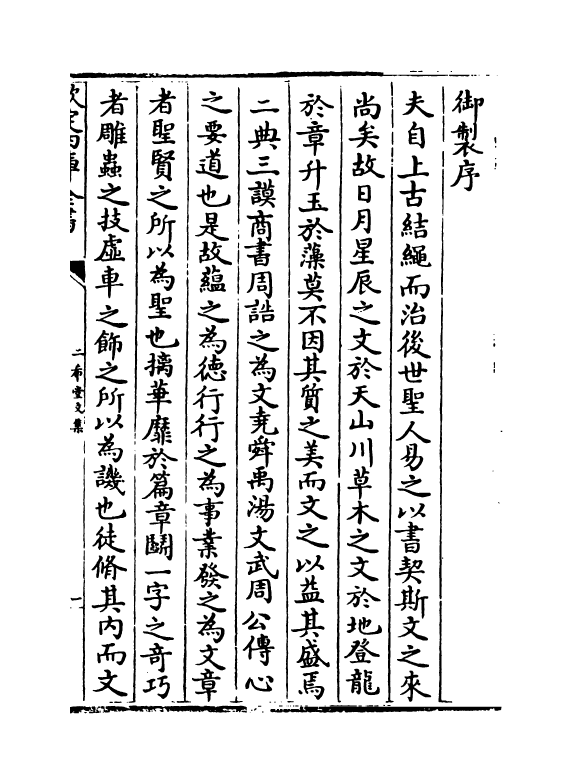 御製序
夫自上古結繩而治後世聖人易之以書契斯文之來
尚矣故日月星辰之文於天山川草木之文於地登龍
於章升玉於藻莫不因其質之美而文之以益其盛焉
二典三謨商書周誥之為文堯舜禹湯文武周公傳心
之要道也是故蘊之為徳行行之為事業發之為文章
者聖賢之所以為聖也摛華靡於篇章鬬一字之竒巧
者雕蟲之技虛車之飾之所以為譏也徒脩其内而文
欽定四庫全書
二希堂文集
一